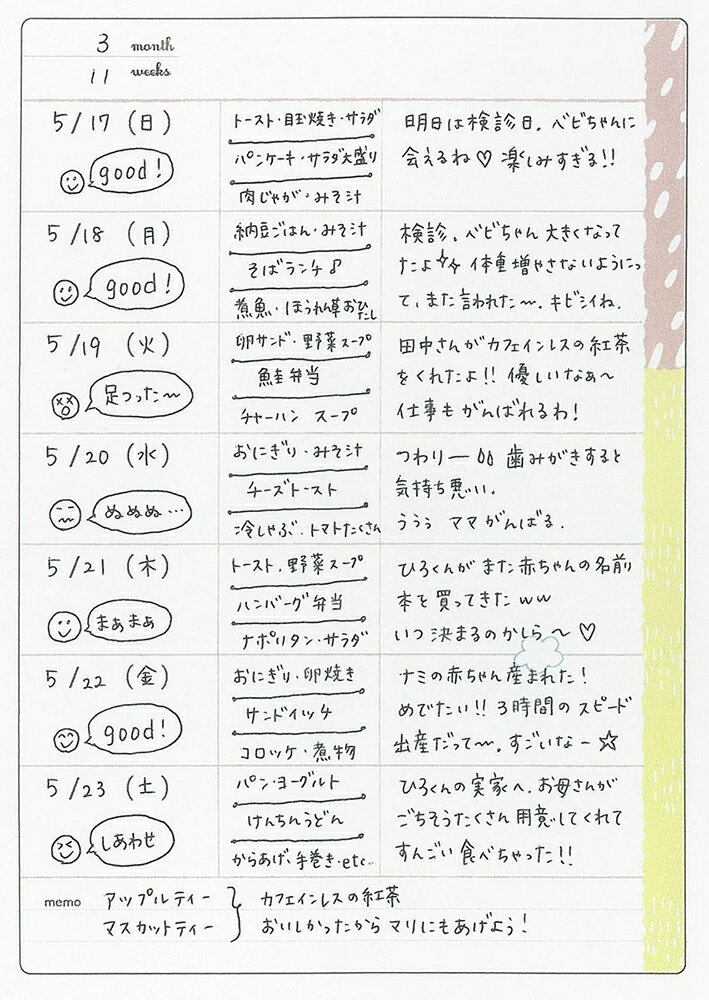 3 month
11 weeks
5/17 (日)
good!
トースト・目玉焼き・サラダ
パンケーキ・サラダ大盛り
肉じゃが・みそ汁
明日は検診日。ベビちゃんに
会えるね♡ 楽しみすぎる!!
5/18 (月)
good!
納豆ごはん・みそ汁
そばランチ♪
煮魚・ほうれん草おひたし
検診。ベビちゃん大きくなって
たよ☆☆ 体重増やさないようにっ
て、また言われた〜。キビシイね。
5/19 (火)
足つった〜
卵サンド・野菜スープ
鮭弁当
チャーハン スープ
田中さんがカフェインレスの紅茶
をくれたよ!! 優しいなぁ〜
仕事もがんばれるわ!
5/20 (水)
ぬぬぬ…
おにぎり・みそ汁
チーズトースト
冷しゃぶ、トマトたくさん
つわりー 歯みがきすると
気持ち悪い。
うぅぅ ママがんばる。
5/21 (木)
まぁまぁ
トースト、野菜スープ
ハンバーグ弁当
ナポリタン・サラダ
ひろくんがまた赤ちゃんの名前
本を買ってきたww
いつ決まるのかしら〜♡
5/22 (金)
good!
おにぎり・卵焼き
サンドイッチ
コロッケ・煮物
ナミの赤ちゃん産まれた!
めでたい!! 3時間のスピード
出産だって〜。すごいなー☆
5/23 (土)
しあわせ
パン・ヨーグルト
けんちんうどん
からあげ、手巻き・etc..
ひろくんの実家へ。お母さんが
ごちそうたくさん用意してくれて
すんごい食べちゃった!!
memo アップルティー } カフェインレスの紅茶
マスカットティー おいしかったからマリにもあげよう!